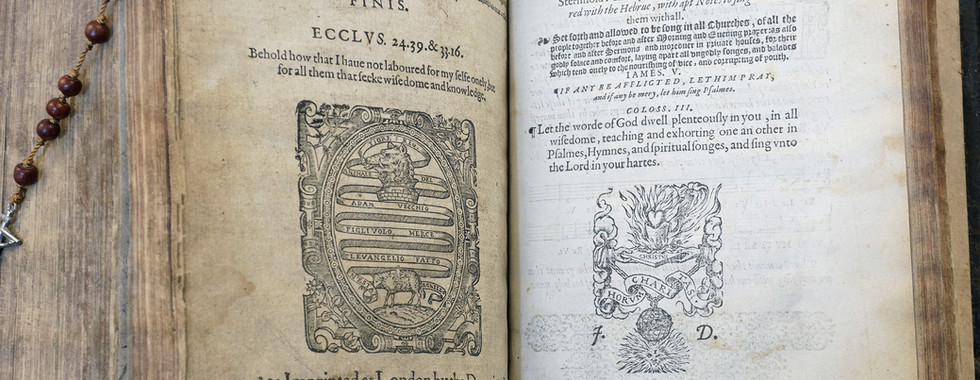 FINIS.
ECCLVS. 24.39. & 33.16.
Behold how that I haue not laboured for my selfe onely, but
for all them that seeke wisedome and knowledge.
ADAM VECCHIO
FIGLIVOLO MERCE
LEVANGELIO FATTO
Imprinted at London by the
red with the Hebrue, with apt Notes to sing
them withall.
Set forth and allowed to be song in all Churches, of all the
people together before and after Morning and Euening prayer: as also
before and after Sermons and moreouer in priuate houses, for their
godly solace and comfort, laying apart all vngodly songes, and balades
which tend onely to the nourishing of vice, and corrupting of youth.
IAMES. V.
¶IF ANY BE AFFLICTED, LET HIM PRAY,
and if any be mery, let him sing Psalmes.
COLOSS. III.
¶Let the worde of God dwell plenteously in you, in all
wisedome, teaching and exhorting one an other in
Psalmes, Hymnes, and spirituall songes, and sing vnto
the Lord in your hartes.
CHRISTVS
HORVM CHARITAS
J. D.